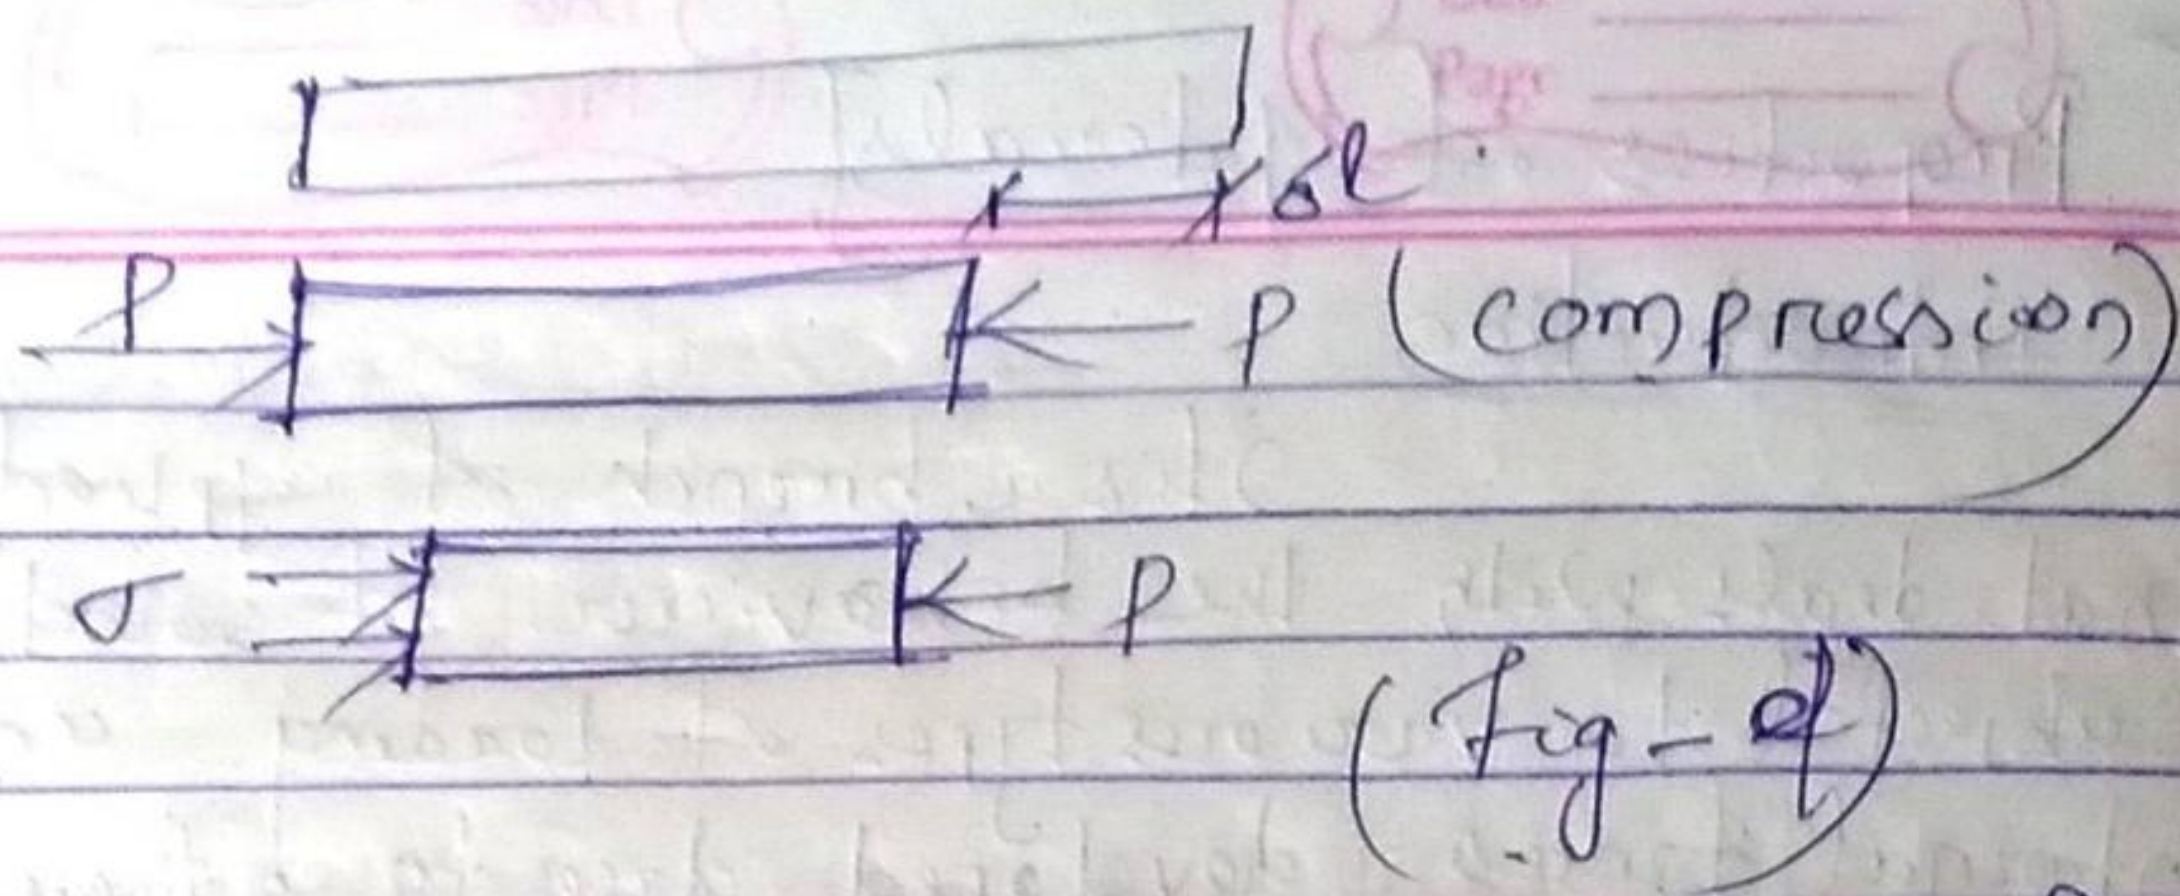 Page
δl
P P (compression)
σ P
(Fig-d)